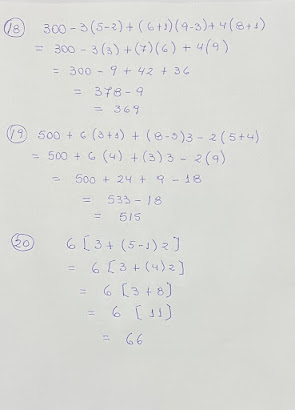 18) 300 - 3(5-2) + (6+1)(9-3) + 4(8+1)
= 300 - 3(3) + (7)(6) + 4(9)
= 300 - 9 + 42 + 36
= 378 - 9
= 369
19) 500 + 6(3+1) + (8-5)3 - 2(5+4)
= 500 + 6(4) + (3)3 - 2(9)
= 500 + 24 + 9 - 18
= 533 - 18
= 515
20) 6[3+(5-1)2]
= 6[3+(4)2]
= 6[3+8]
= 6[11]
= 66